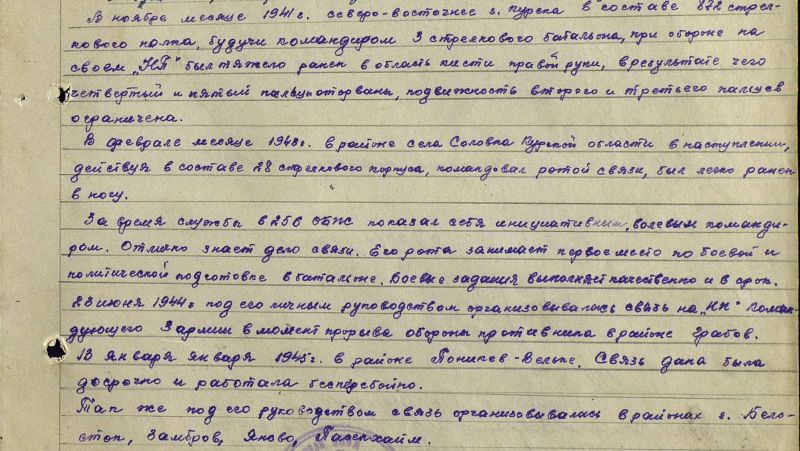 В ноябре месяце 1941 г. северо-восточнее г. Курска в составе 872 стрел-
кового полка, будучи командиром 3 стрелкового батальона, при обороне на
своем „НП" был тяжело ранен в область кисти правой руки, в результате чего
четвертый и пятый пальцы оторваны, подвижность второго и третьего пальцев
ограничена.
В феврале месяце 1943г. в районе села Соловка Курской области в наступлении,
действуя в составе 28 стрелкового корпуса, командовал ротой связи, был легко ранен
в ногу.
За время службы в 256 ОБС показал себя инициативным, волевым команди-
ром. Отлично знает дело связи. Его рота занимает первое место по боевой и
политической подготовке в батальоне. Боевые задания выполняет качественно и в срок.
23 июня 1944г. под его личным руководством организовывалась связь на „НП" коман-
дующего 3 армии в момент прорыва обороны противника в районе Грабов.
13 января января 1945г. в районе Поникев-Вельке. Связь дана была
досрочно и работала бесперебойно.
Так же под его руководством связь организовывалась в районах г. Бело-
сток, Замбров, Яново, Пассенхайм.